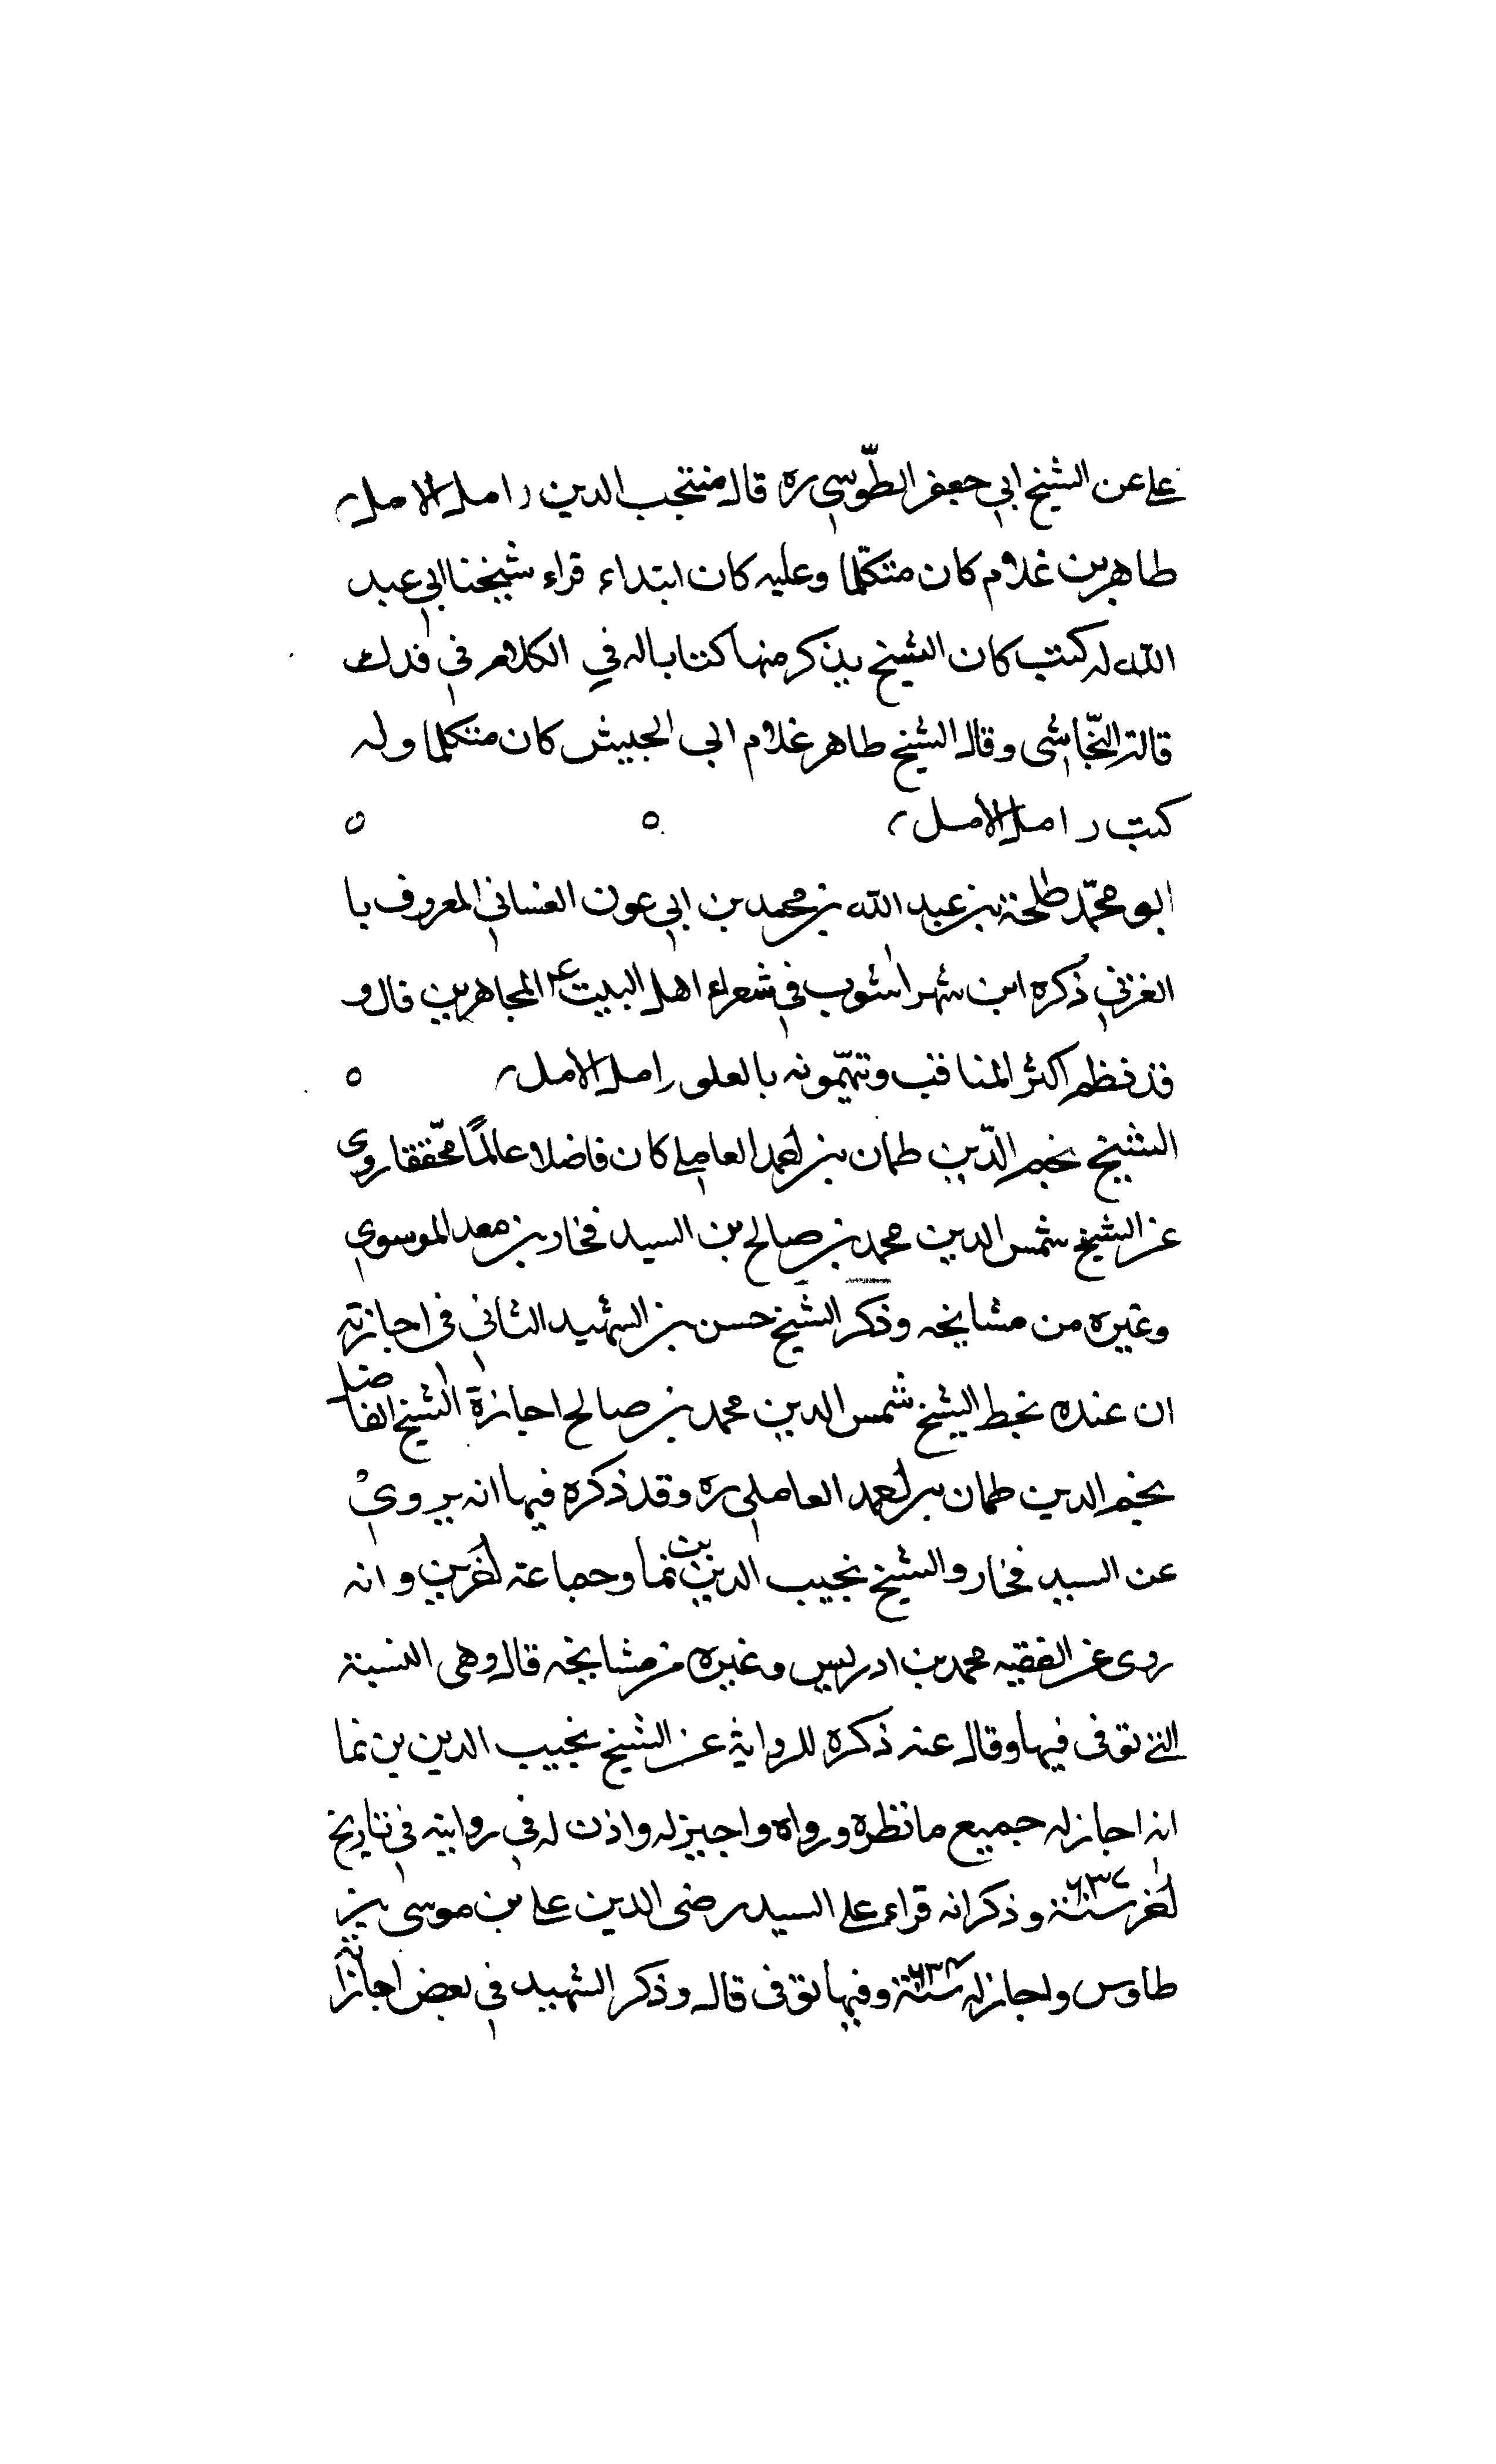 على عن الشيخ ابي جعفر الطّوسي ره قال منتجب الدين ر امل الامل
طاهر بن غلام كان متكلّما وعليه كان ابتداء قراء شيخنا ابي عبد
الله له كتب كان الشيخ يذكر منها كتابا له في الكلام في فدك
قاله النّجاشى وقال الشيخ طاهر غلام ابى الجبيش كان متكلما وله
كتب ر امل الامل ٥ ٥
ابو محمّد طلحة بن عبد الله بن محمد بن ابي عون الغساني المعروف با
الغزني ذكره ابن شهر اشوب في شعراء اهل البيت ع المجاهرين قال و
قد نظم اكثر المناقب ويتّهمونه بالعلو ر امل الامل ٥
الشيخ نجم الدّين طمان بن احمد العاملي كان فاضلا عالمًا محّققا روى
عن الشيخ شمس الدين محمد بن صالح بن السيد فخار بن معد الموسوي
وغيره من مشايخه وذكر الشيخ حسن بن الشهيد الثاني في اجازته
ان عنده بخط الشيخ شمس الدين محمد بن صالح اجازة الشيخ الفاضل
نجم الدين طمان بن احمد العاملي ره وقد ذكره فيها انه يروي
عن السيد فخار والشيخ نجيب الدين بن نما وجماعة اخرين وانه
روى عن الفقيه محمد بن ادريس وغيره من مشايخه قال وهى النسبة
التي توفى فيها وقال عند ذكره للرواية عن الشيخ نجيب الدين بن نما
انه اجاز له جميع ما نظره ورواه واجيز له واذن له في روايته في تاريخ
اخر سنة ٦٣٧ وذكر انه قراء على السيد رضى الدين على بن موسى بن
طاوس واجاز له سنة ٦٣٤ وفيها توفى قال وذكر الشهيد في بعض اجازاته